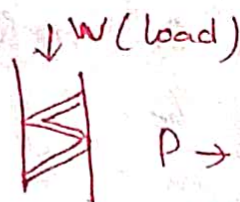 ↓ W (load)
P →